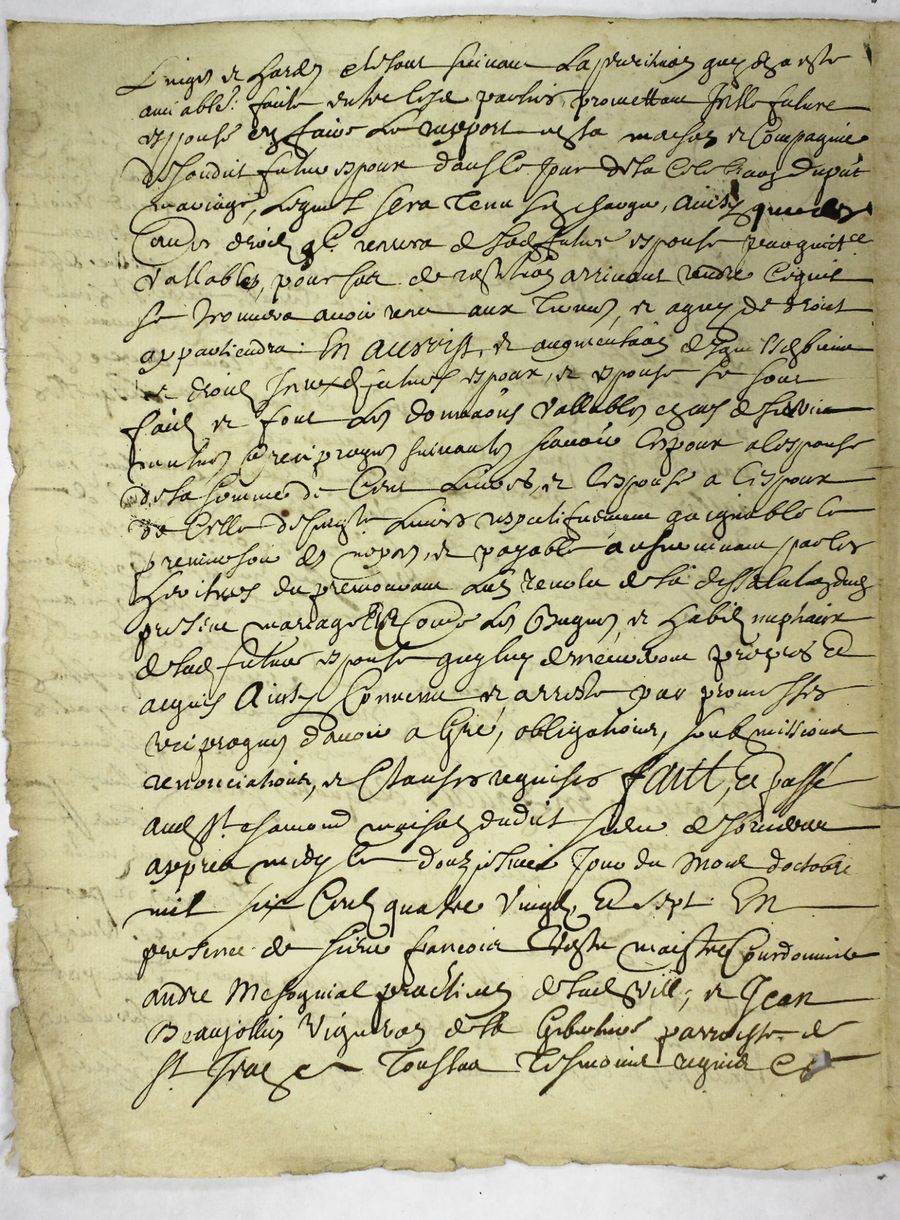 Linges et hardes et le tout suivant la première quy en a esté
amiablem. faite entre lesd parties promettant lad future
espouse en faire le rapport en la maison et Compagnie
dud futur espoux dans le jour de la celebraon du pnt
mariage, lequel sera tenu s'en charger, ainsy que des
autres droits qu'il recevra de lad future espouse par quittce
vallables, pour cas de restituon arrivant rendre ce qu'il
se trouvera avoir receu aux siens, et a quy de droit
appartiendra. En aussy et augmentaon de
et droits lesd futurs espoux, et espouse se sont
faits et font les donnaons vallables en cas de survie
mutuels & reciproques suivantes scavoir l'espoux a l'espouse
de la somme de Cent Livres, et l'espouse a l'espoux
de celle de Livres respectivement gaignable le
premier son de nopces, et payable au survivant par les
heritiers du premourant l'an revolu de la dissoluon dud
present mariage Et Comme les Bagues et habits nuptiaux
de lad future espouse quy luy demeureront propres Et
acquis Ainsy Convenu et arresté par promesses
reciproques d'avoir a gré, obligations, soubmissions
renonciations, et clauses requises fait, et passé
aud St chamond maison dudit sieur
apprès midy le douziesme jour du mois doctobre
mil six Cents quatre vingt Et sept En
presence de sieur françois maistre Courdonnier
andré praticien de lad ville, et Jean
Beaujollin Vigneron de la parroisse de
St Tesmoins requis